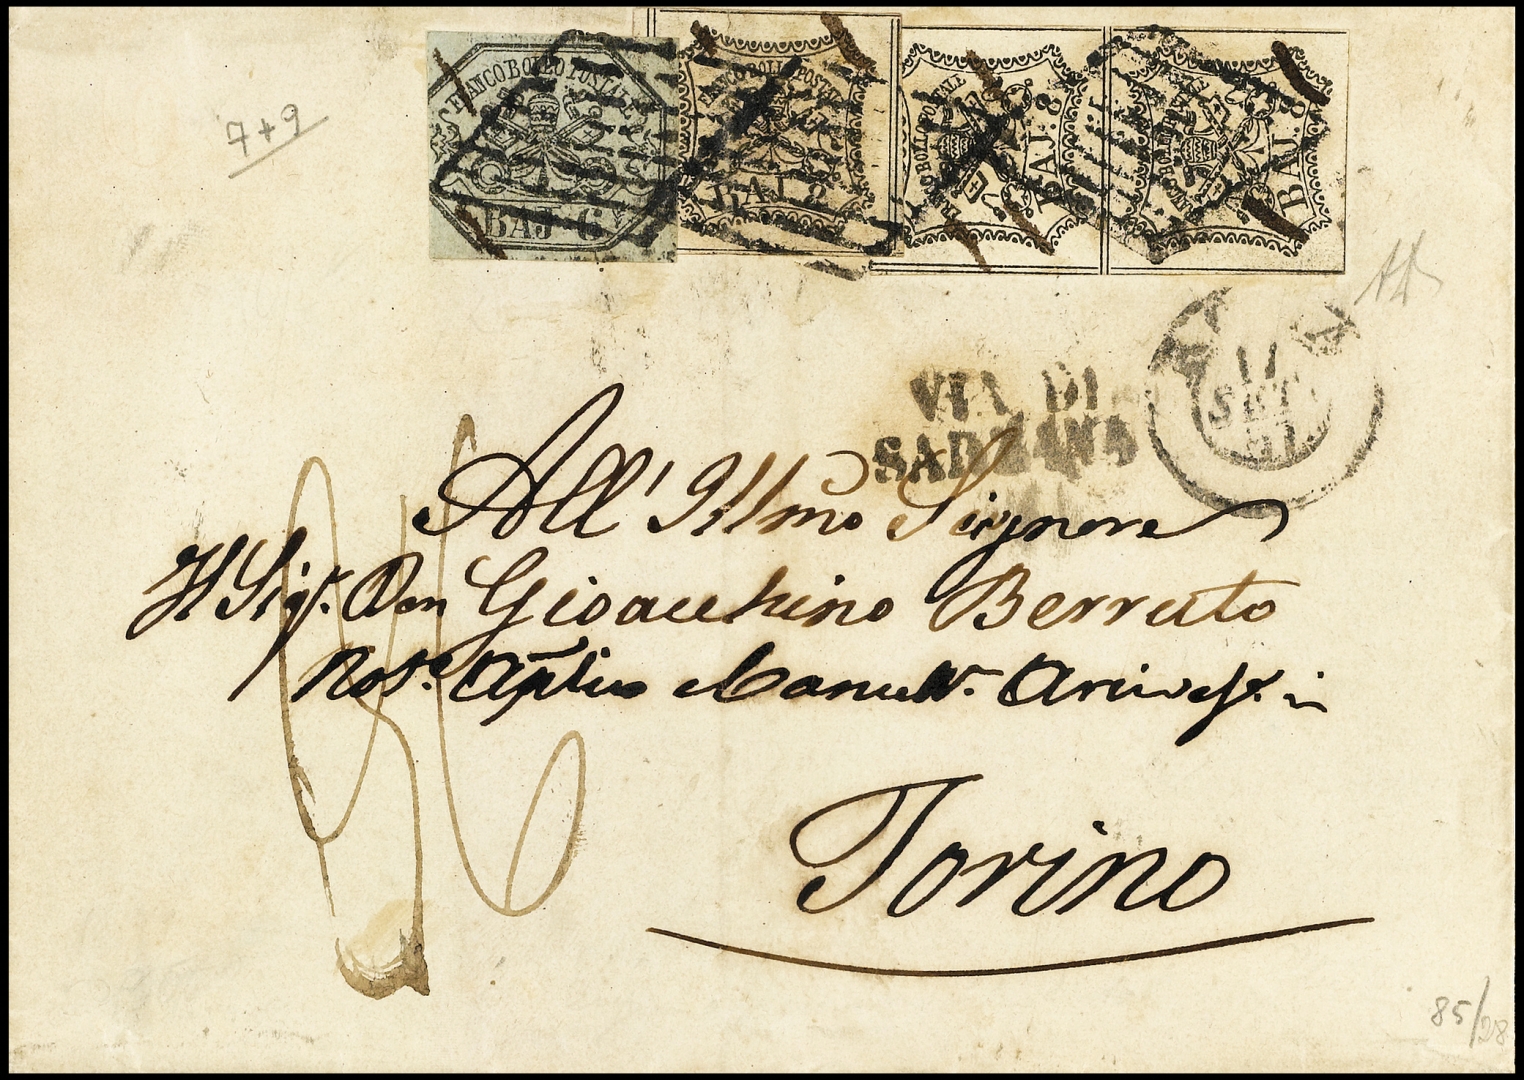 7+9
FRANCO BOLLO POSTALE
BAJ 6
FRANCO BOLLO POSTALE
BAJ. 8
FRANCO BOLLO POSTALE
BAJ. 8
FRANCO BOLLO POSTALE
BAJ. 8
11
SET
VIA DI
SARZANA
All' Illmo Signore
Il Sig. Don Gioacchino Berruto
Torino
85/28